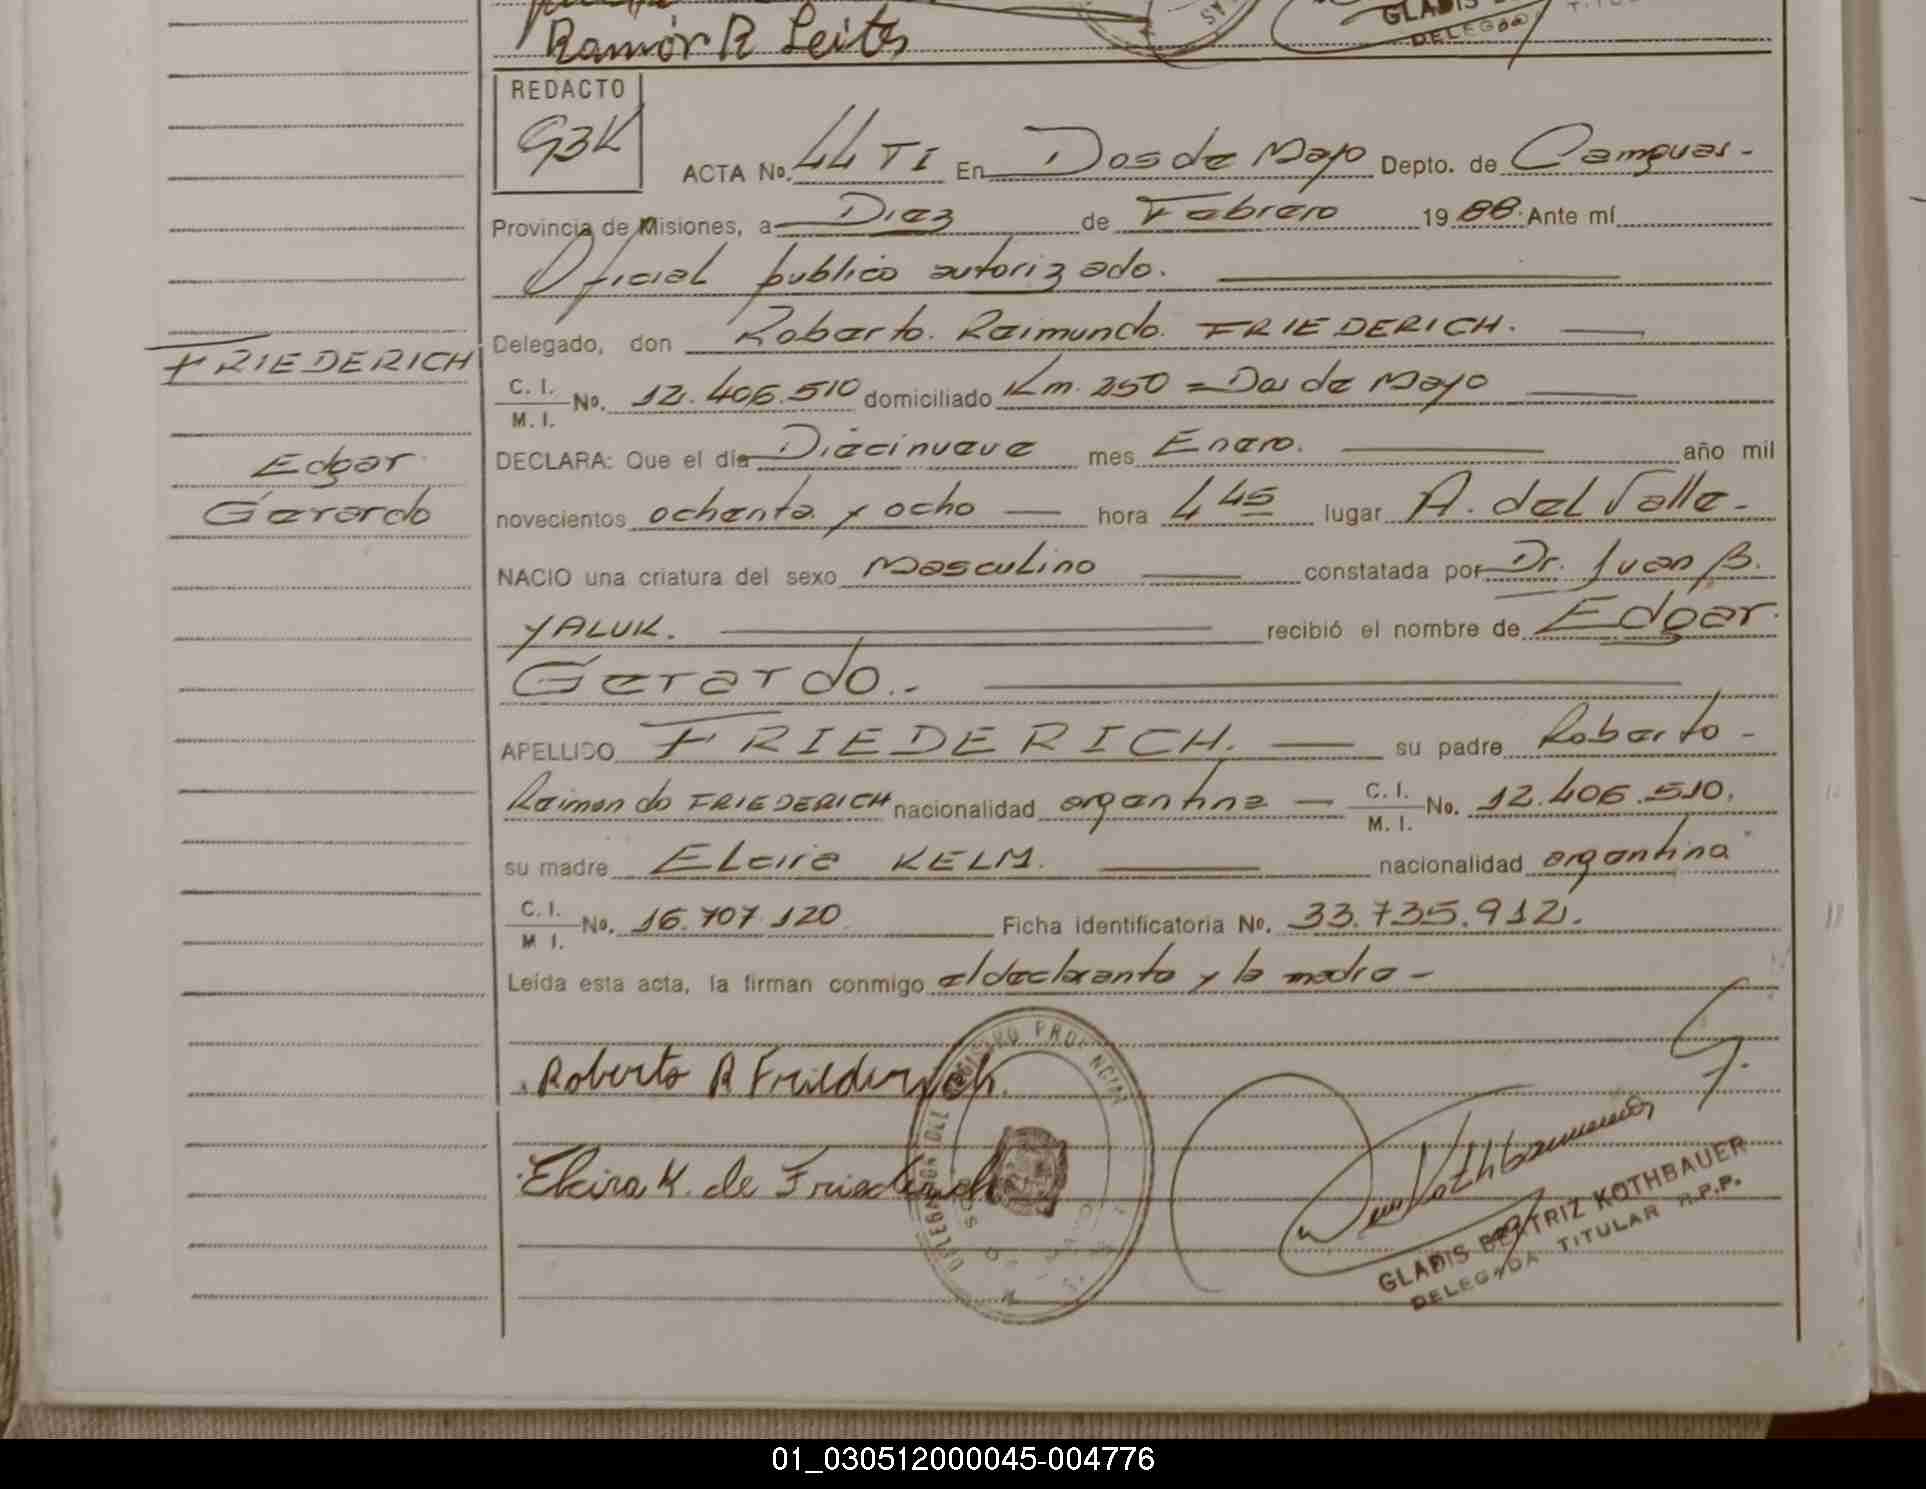 Ramón R Leites
GLADIS
DELEGADA TITU
REDACTO
G3K
ACTA No. 44 TI En Dos de Mayo Depto. de Cainguas-
Provincia de Misiones, a Diez de Febrero 19 88. Ante mí
Oficial publico autorizado.
Delegado, don Roberto. Raimundo. FRIEDERICH.
FRIEDERICH
C. I.
M. I. No. 12.406.510 domiciliado Km. 250 = Dos de Mayo
DECLARA: Que el día Diecinueve mes Enero. año mil
Edgar
Gerardo
novecientos ochenta y ocho hora 4 45 lugar A. del Valle-
NACIO una criatura del sexo Masculino constatada por Dr. Juan B.
YALUK. recibió el nombre de Edgar.
Gerardo.-
APELLIDO FRIEDERICH. su padre Roberto-
Raimondo FRIEDERICH nacionalidad argentina C. I.
M. I. No. 12.406.510.
su madre Elcira KELM. nacionalidad argentina
C. I.
M I. No. 16.707.120 Ficha identificatoria No. 33.735.912.
Leída esta acta, la firman conmigo el declarante y la madre-
Roberto R Friederich.
Elcira K. de Friederich
GLADIS BEATRIZ KOTHBAUER
DELEGADA TITULAR R.P.P.
01_030512000045-004776